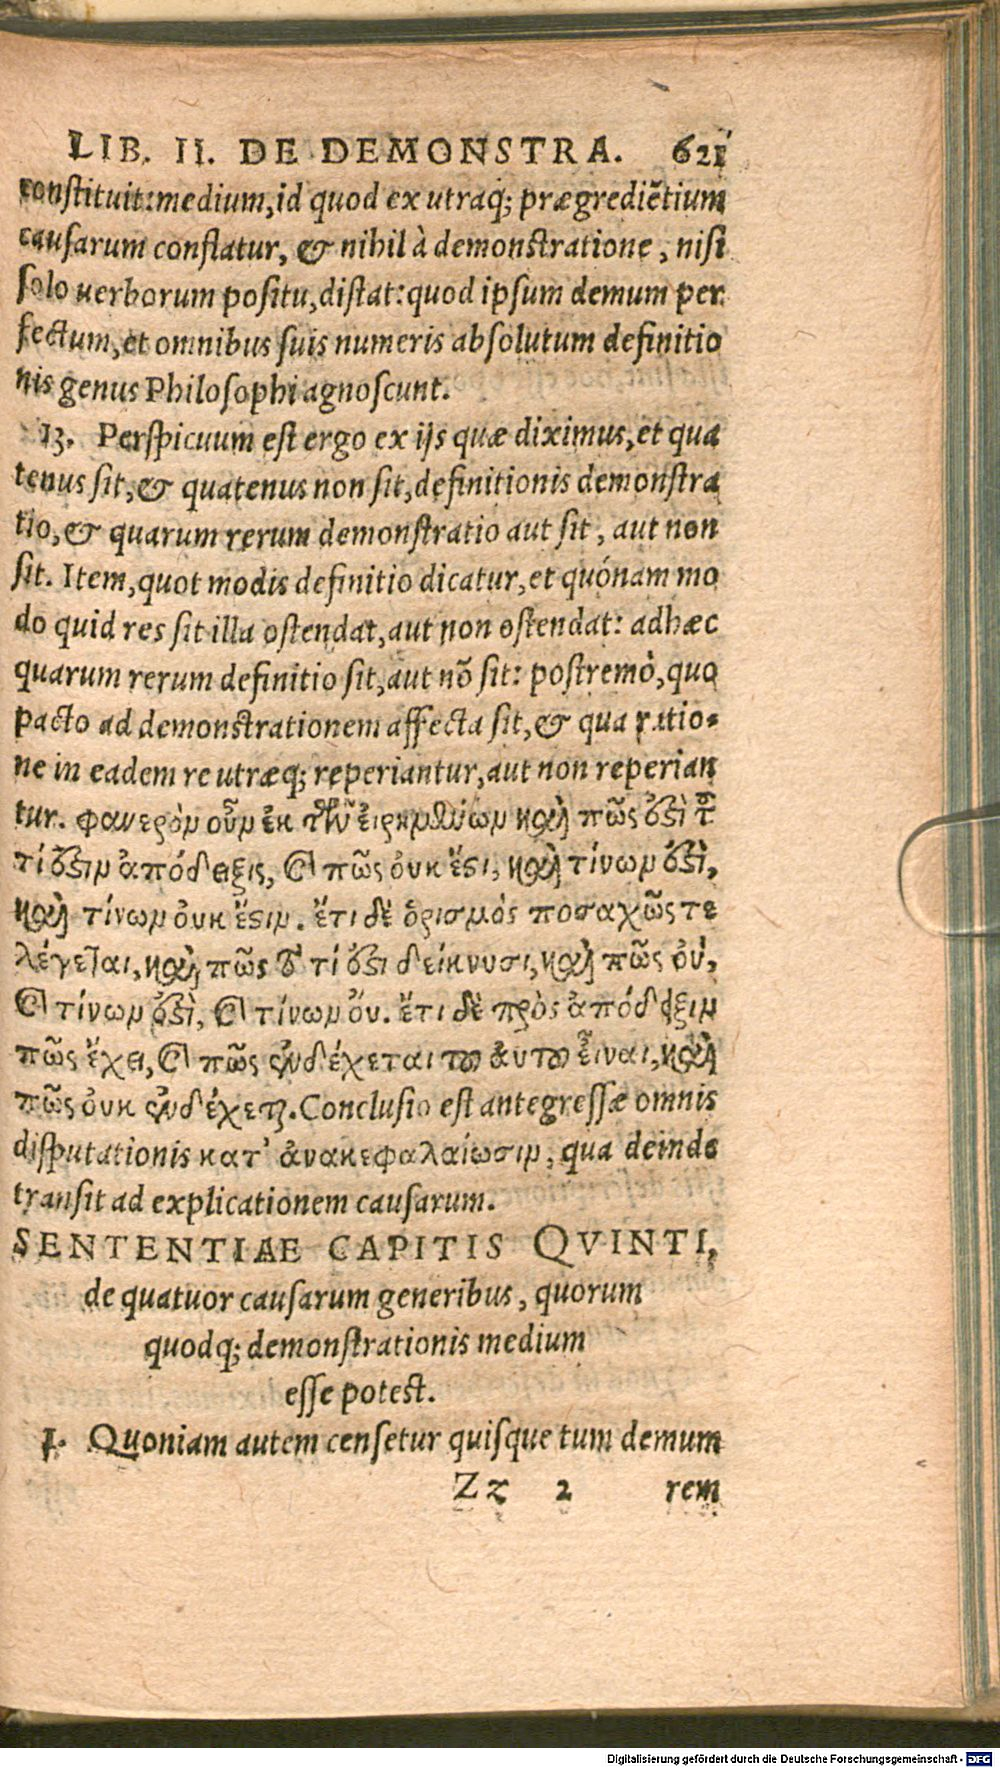 LIB. II. DE DEMONSTRA. 621
constituit: medium, id quod ex utraq; prægrediẽtium
causarum conflatur, & nihil à demonstratione, nisi
solo uerborum positu, distat: quod ipsum demum per
fectum, et omnibus suis numeris absolutum definitio
nis genus Philosophi agnoscunt.
13. Perspicuum est ergo ex ijs quæ diximus, et qua
tenus sit, & quatenus non sit, definitionis demonstra
tio, & quarum rerum demonstratio aut sit, aut non
sit. Item, quot modis definitio dicatur, et quónam mo
do quid res sit illa ostendat, aut non ostendat: adhæc
quarum rerum definitio sit, aut nõ sit: postremò, quo
pacto ad demonstrationem affecta sit, & qua ratio-
ne in eadem re utræq; reperiantur, aut non reperian
tur. φανερὸν οὖν ἐκ τῶν εἰρημένων καὶ πῶς ἐστὶ τοῦ
τί ἐστιν ἀπόδειξις, καὶ πῶς οὐκ ἔστι, καὶ τίνων ἐστὶ,
καὶ τίνων οὐκ ἔστιν. ἔτι δὲ ὁρισμὸς ποσαχῶς τε
λέγεται, καὶ πῶς τὸ τί ἐστι δείκνυσι, καὶ πῶς οὐ,
καὶ τίνων ἐστὶ, καὶ τίνων οὔ. ἔτι δὲ πρὸς ἀπόδειξιν
πῶς ἔχει, καὶ πῶς ἐνδέχεται τοῦ αὐτοῦ εἶναι, καὶ
πῶς οὐκ ἐνδέχεται. Conclusio est antegressæ omnis
disputationis κατ' ἀνακεφαλαίωσιν, qua deinde
transit ad explicationem causarum.
SENTENTIAE CAPITIS QVINTI,
de quatuor causarum generibus, quorum
quodq; demonstrationis medium
esse potest.
1. Quoniam autem censetur quisque tum demum
Zz 2 rem
Digitalisierung gefördert durch die Deutsche Forschungsgemeinschaft - DFG